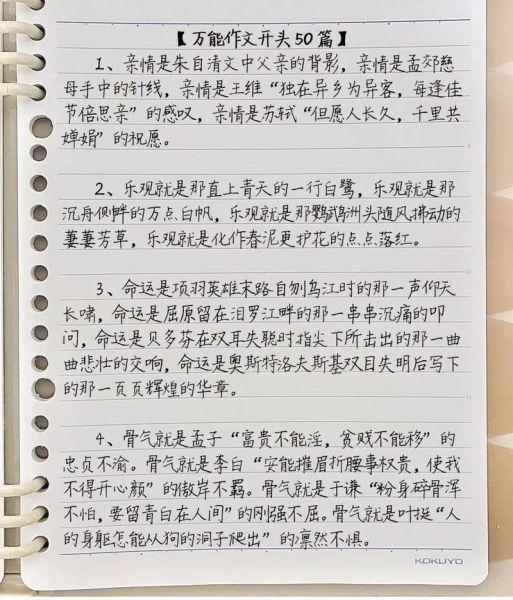 【万能作文开头50篇】
1、亲情是朱自清文中父亲的背影，亲情是孟郊慈
母手中的针线，亲情是王维“独在异乡为异客，每逢佳
节倍思亲”的感叹，亲情是苏轼“但愿人长久，千里共
婵娟”的祝愿。
2、乐观就是那直上青天的一行白鹭，乐观就是那
沉舟侧畔的万点白帆，乐观就是那鹦鹉洲头随风拂动的
萋萋芳草，乐观就是化作春泥更护花的点点落红。
3、命运是项羽英雄末路自刎乌江时的那一声仰天
长啸，命运是屈原留在汨罗江畔的那一串串沉痛的叩
问，命运是贝多芬在双耳失聪时指尖下所击出的那一曲
曲悲壮的交响，命运是奥斯特洛夫斯基双目失明后写下
的那一页页辉煌的华章。
4、骨气就是孟子“富贵不能淫，贫贱不能移”的
忠贞不渝。骨气就是李白“安能摧眉折腰事权贵，使我
不得开心颜”的傲岸不羁。骨气就是于谦“粉身碎骨浑
不怕，要留青白在人间”的刚强不屈。骨气就是叶挺“人
的身躯怎能从狗的洞子爬出”的凛然不惧。
KOKUYO